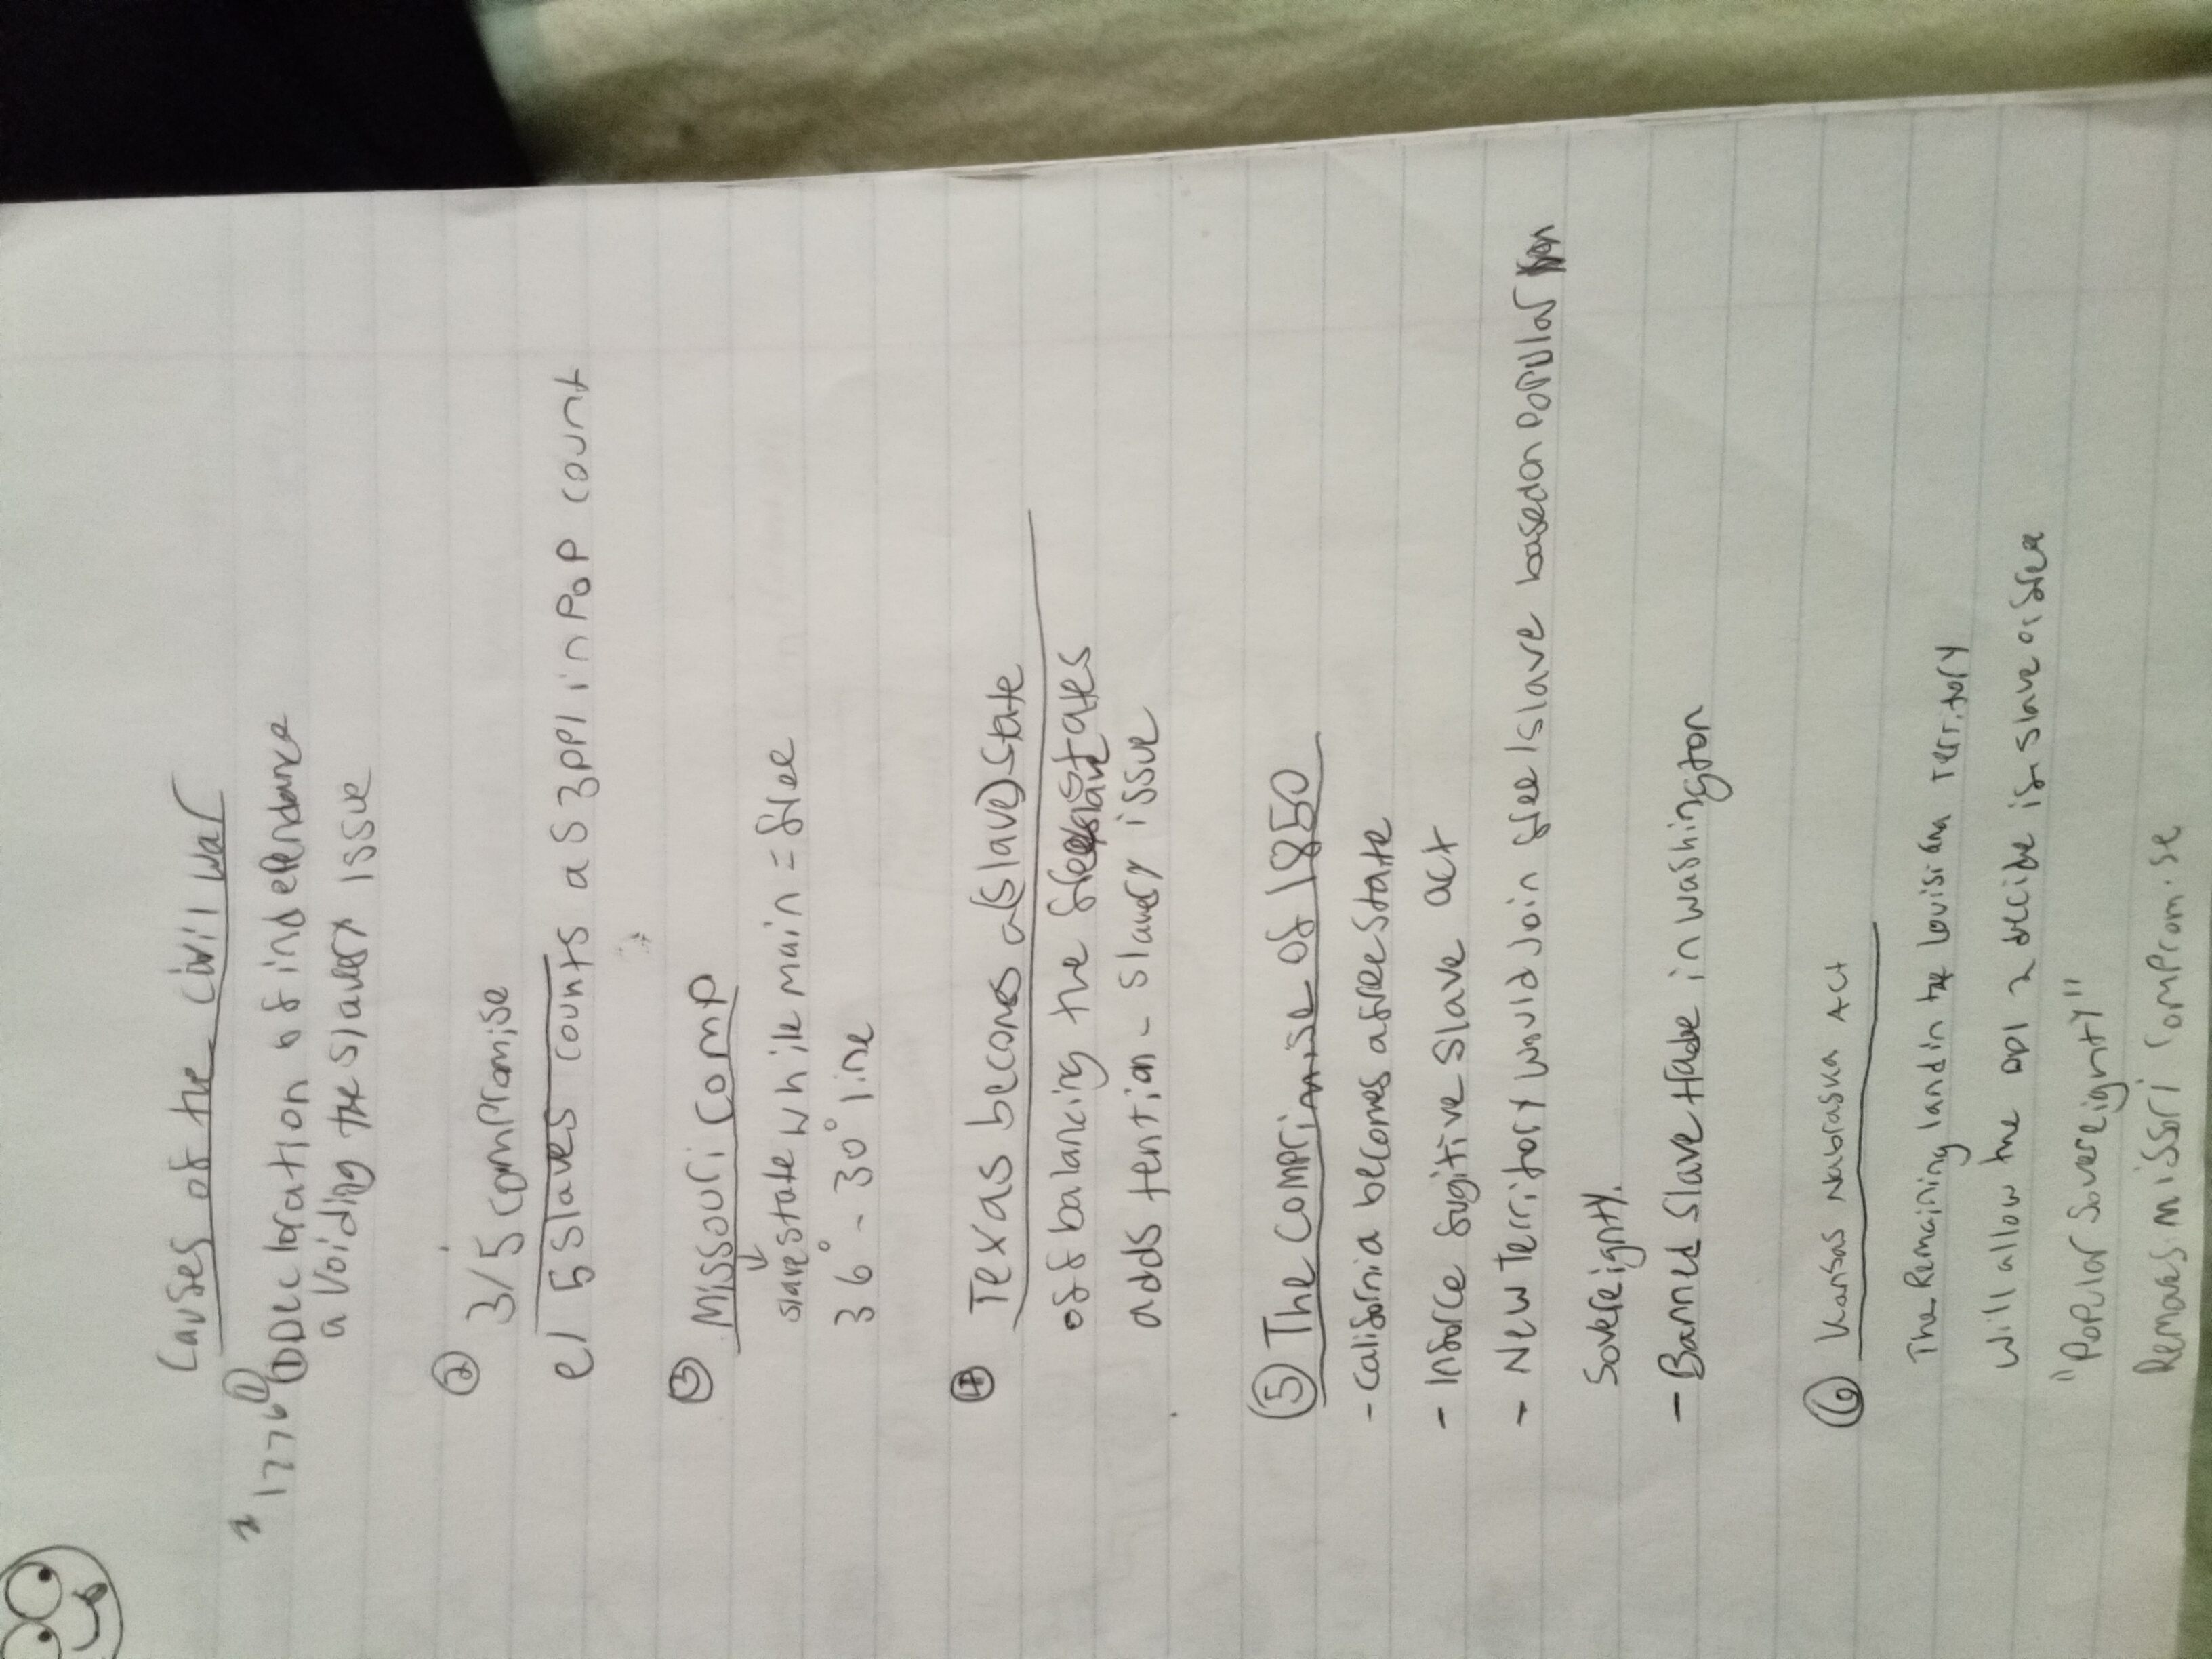 Causes of the Civil War
1776 ① ① Decloration of independance
avoiding the slavery issue
② 3/5 compromise
e/ 5 slaves counts as 3 ppl in pop count
③ Missouri comp
↓
slave state while main = free
36° - 30° line
④ Texas becomes a (slave) state
off balancing the free/slave states
adds tention - slavery issue
⑤ The Comprimise of 1850
- California becomes a free state
- Inforce fugitive slave act
- New Territory would Join free/slave based on popular
Sovereignty.
- Banned slave trade in washington
⑥ Kansas Nabraska Act
The Remaining land in the Louisiana Territory
will allow the ppl 2 decide if slave or free
"Popular Sovereignty"
Removes missori compromise